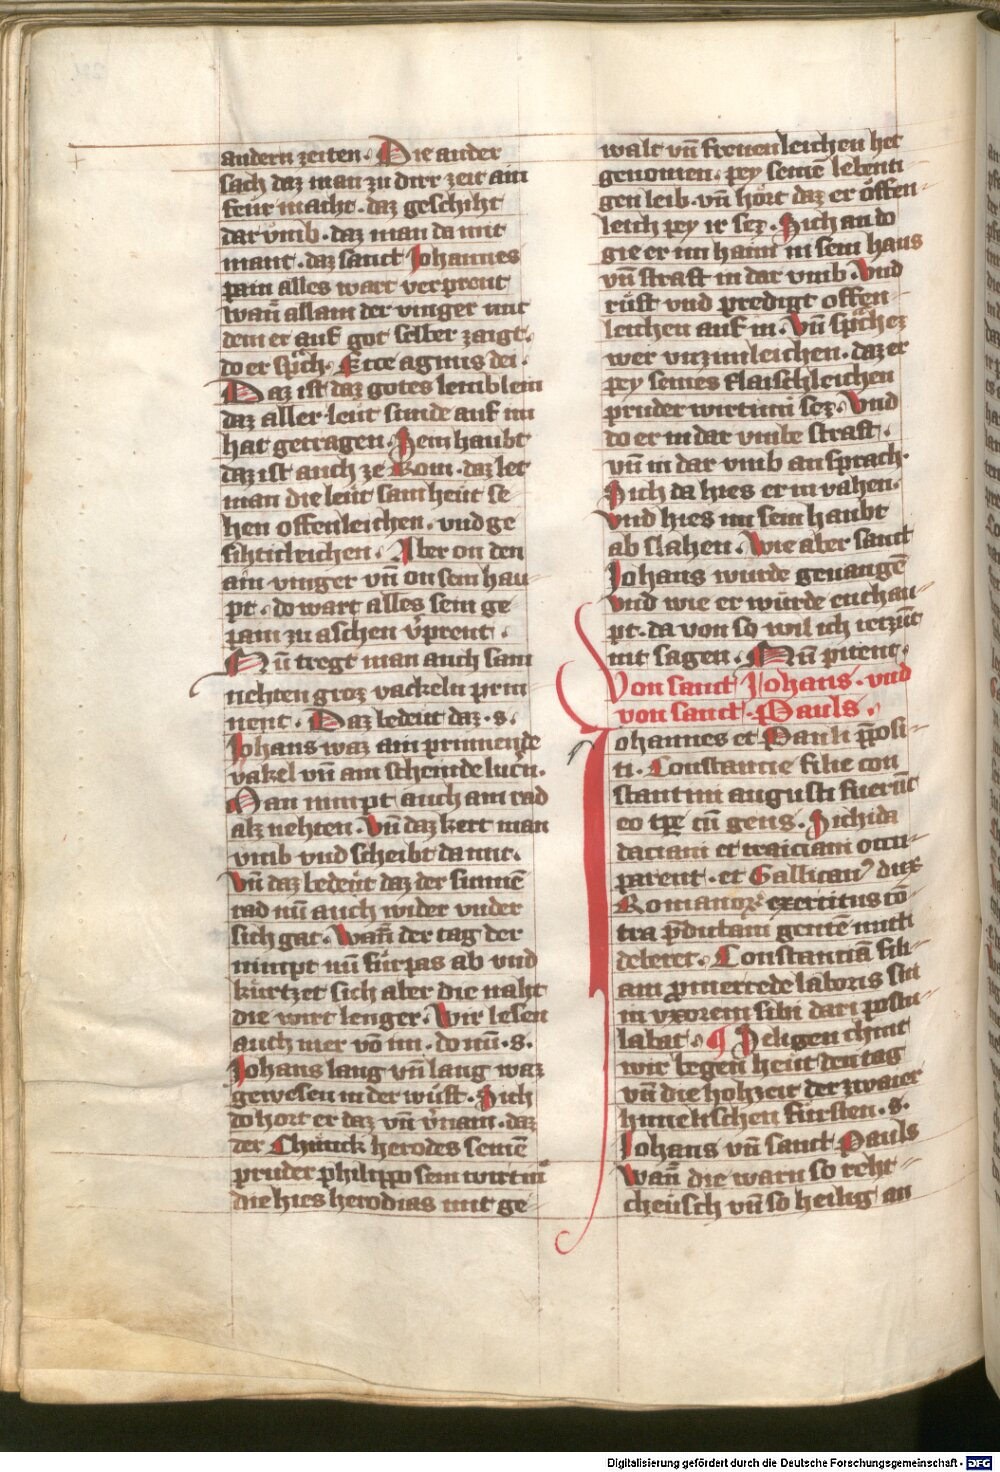 andern zeiten. Die ander
sach daz man zu dirr zeit ain
feür macht. daz geschiht
dar vmb. daz man da mit
mant. daz sanct Johannes
pain alles wart verprent
wan̄ allain der vinger mit
dem er auf got selber zaigt.
do er sp̄ch. Ecce agnus dei.
Daz ist daz gotes lemblein
daz aller leüt sünde auf im
hat getragen. Sein haubt
daz ist auch ze Rom. daz let
man die leüt sam heüt se
hen offenleichen. vnd ge
sihticleichen. Aber on den
ain vinger vn̄ on sein hau
pt. do wart alles sein ge
pain zu aschen v̄prent.
Nu tregt man auch sam
nehten groz vackeln prin
nent. Daz bedeut daz. s.
Johans waz ain prinnende
vakel vn̄ ain scheinde lucn̄.
Man nimpt auch ain rad
alz nehten. Vn̄ daz kert man
vmb vnd scheibt da mit.
Vn̄ daz bedeüt daz der sunnē
rad nū auch wider vnder
sich gat. Wan̄ der tag der
nimpt nū fürpas ab vnd
kürtzet sich aber die naht
die wirt lenger. Wir lesen
auch mer vō im. do nū. s.
Johans lang vn̄ lang waz
gewesen in der wüst. Sich
do hort er daz vn̄ v̄nam. daz
der Chünck herodes seinē
pruder philippo sein wirtin
die hies herodias mit ge
walt vn̄ freuenleichen het
genomen. pey seinē lebenti
gen leib. vn̄ hört daz er öffen
leich pey ir sez. Sich an do
gie er im haim in sein haus
vn̄ straft in dar vmb. Vnd
rüft vnd predigt offen
leichen auf in. Vn̄ sp̄ch ez
wer vnzimleichen. daz er
pey seines flaischleichen
pruder wirtinn sez. Vnd
do er in dar vmbe straft.
vn̄ in dar vmb an sprach.
Sich da hies er in vahen.
Vnd hies im sein haubt
ab slahen. Wie aber sanct
Johans wurde geuangē
Vnd wie er würde enthau
pt. da von so wil ich ietzūt
nit sagen. Nū pitent.
Von sanct Johans. vnd
von sanct. Pauls.
Johannes et Pauli p̄posi
ti. Constancie filie con
stantini augusti fuerūt
eo tp̄e cū gens. Sichida
daciani et traiciani occu
parent. et Gallican9 dux
Romanor exercitus cō
tra p̄dictam gentē mitti
deberet. Constanciā fili
am p mercede laboris sui
in vxorem sibi dari postu
labat. ¶ Seligen christ
wir begen heüt den tag
vn̄ die hohzeit der zwaier
himelischen fürsten. s.
Johans vn̄ sanct Pauls
Wan̄ die warn so reht
cheüsch vn̄ so heilig an
Digitalisierung gefördert durch die Deutsche Forschungsgemeinschaft - DFG